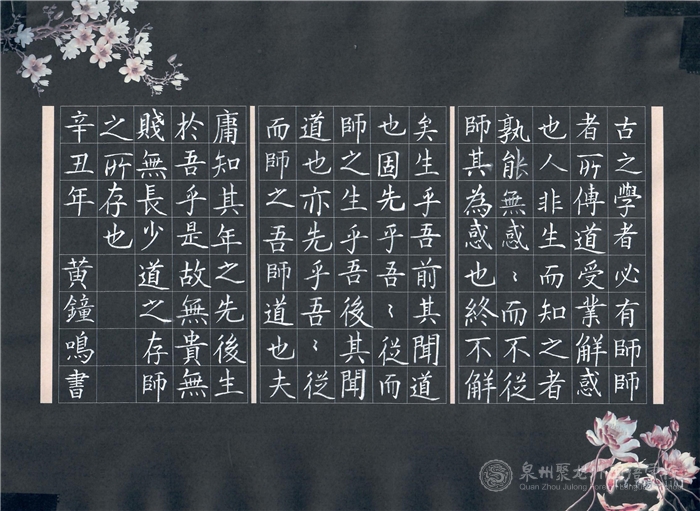 古之學者必有師師
者所傳道受業解惑
也人非生而知之者
孰能無惑〻而不從
師其為惑也終不解
矣生乎吾前其聞道
也固先乎吾〻從而
師之生乎吾後其聞
道也亦先乎吾〻從
而師之吾師道也夫
庸知其年之先後生
於吾乎是故無貴無
賤無長少道之存師
之所存也
辛丑年 黃鐘鳴書
泉州聚龙
Quan Zhou Julong Foreign Language